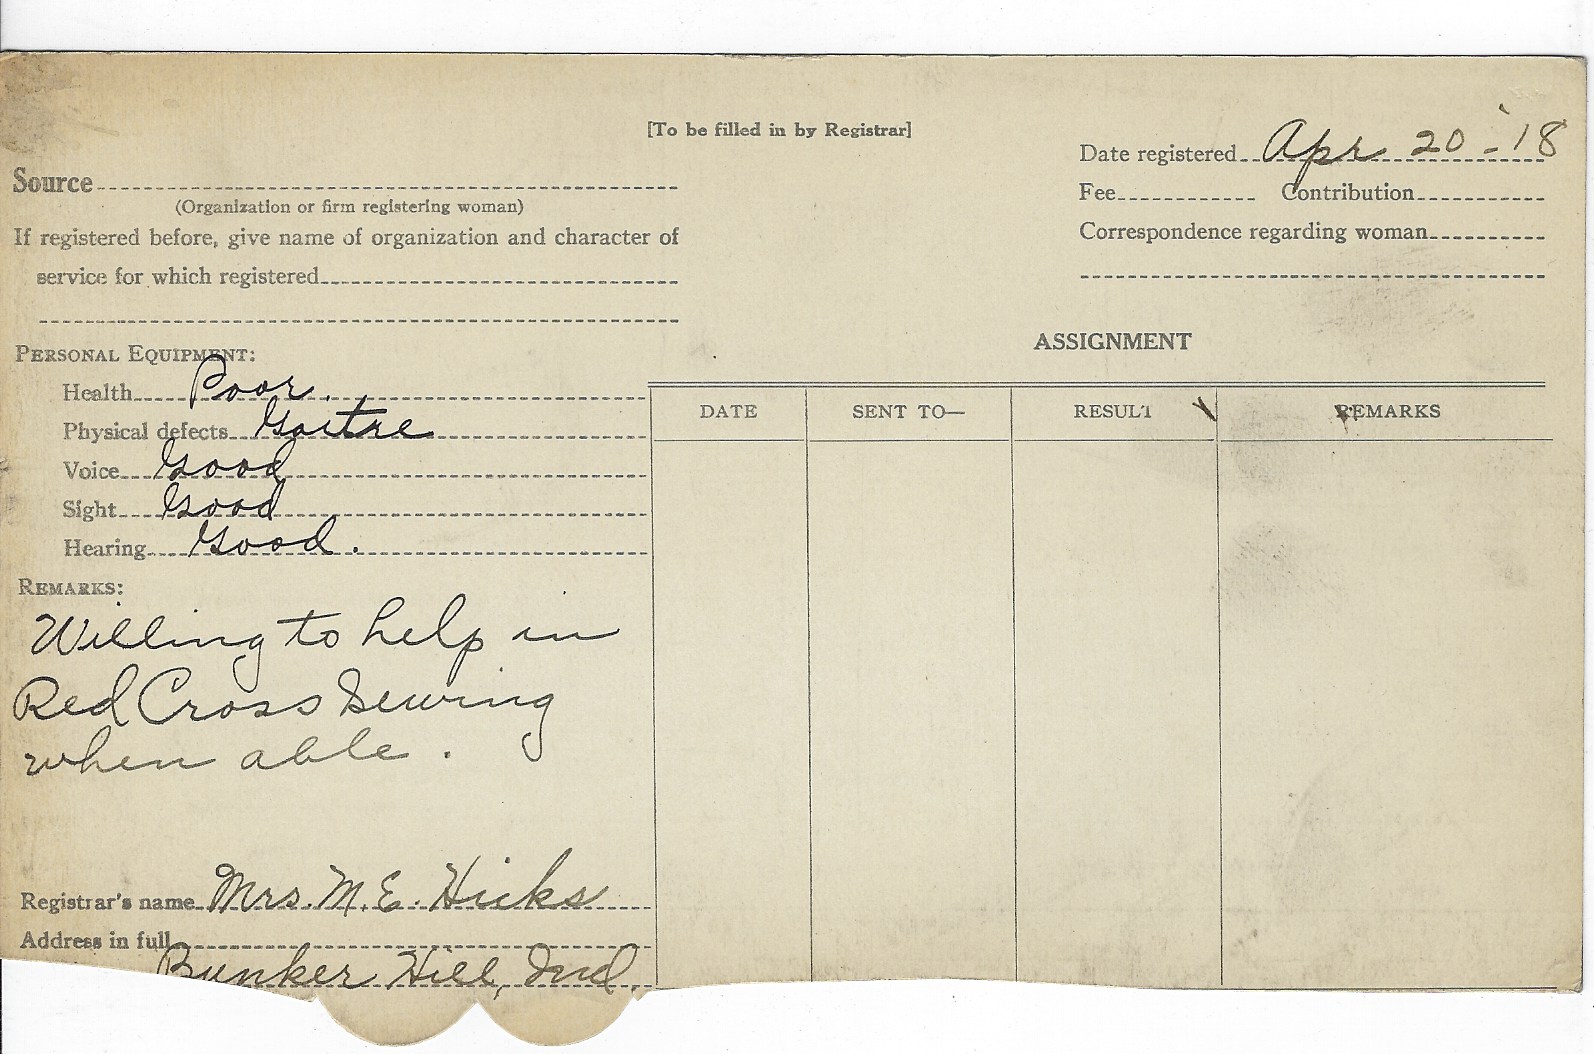 [To be filled in by Registrar]
Date registered Apr 20 - '18
Source
(Organization or firm registering woman)
Fee Contribution
If registered before, give name of organization and character of
service for which registered
Correspondence regarding woman
PERSONAL EQUIPMENT:
Health Poor.
Physical defects Goitre
Voice Good
Sight Good
Hearing Good.
REMARKS:
Willing to help in
Red Cross Sewing
when able.
Registrar's name Mrs. M. E. Hicks
Address in full
Bunker Hill, Ind.
ASSIGNMENT
DATE SENT TO— RESULT REMARKS